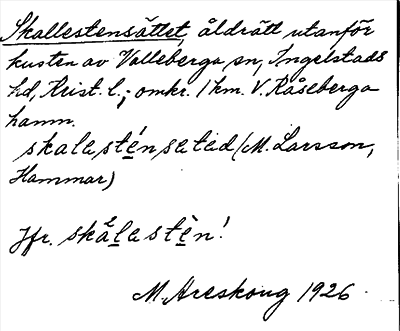 Skallestensättet, åldrätt utanför
kusten av Valleberga sn, Ingelstads
hd, Krist. l.; omkr. 1 km. V. Kåseberga
hamn.
skalesténsetəd (M. Larsson,
Hammar)
Jfr. skålestèn!
M. Areskoug 1926.